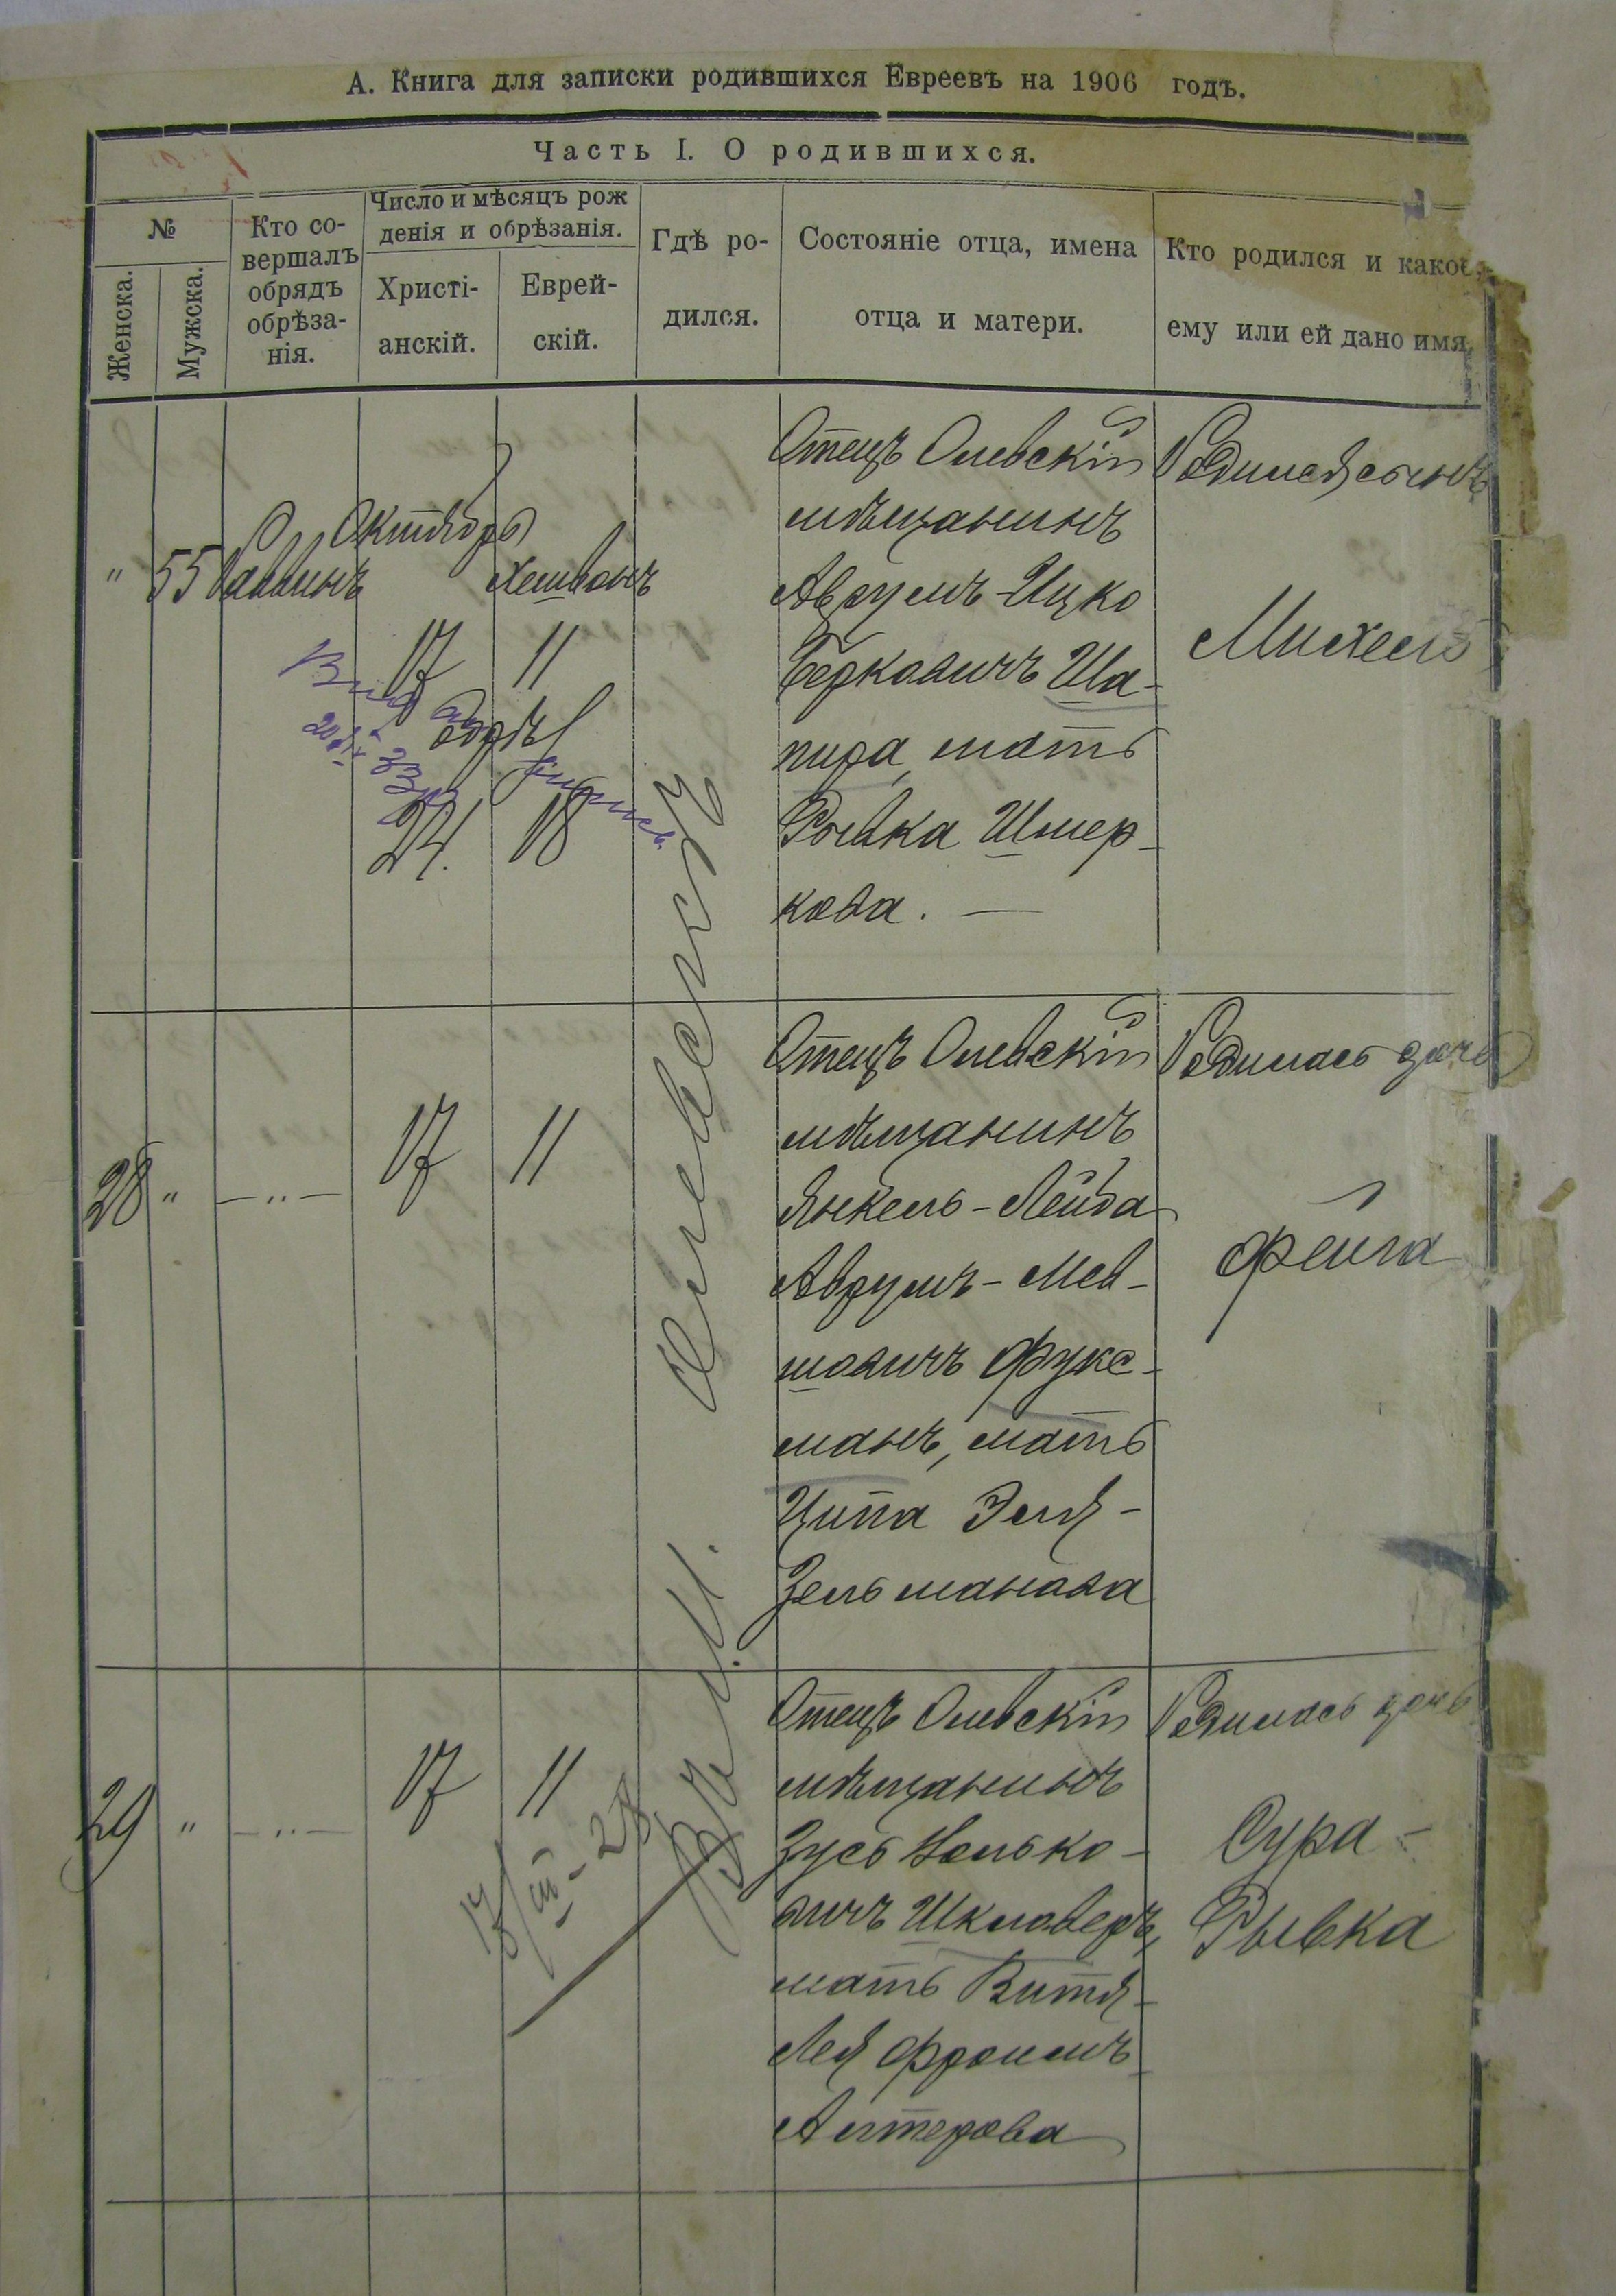 А. Книга для записки родившихся Евреевъ на 1906 годъ.
Часть I. О родившихся.
№
Женска.
Мужска.
Кто со-
вершалъ
обрядъ
обрѣза-
нія.
Число и мѣсяцъ рож
денія и обрѣзанія.
Христі-
анскій.
Еврей-
скій.
Гдѣ ро-
дился.
Состояніе отца, имена
отца и матери.
Кто родился и какое
ему или ей дано имя.
" 55 Раввинъ
Октябрь
Хешванъ
17 11
обрѣз
24. 18
Отецъ Олевскій
мѣщанинъ
Аврумъ-Ицко
Берковичъ Ша-
пира, мать
Рывка Шмер-
кова. —
Родился сынъ
Михель
Олевскъ
28 " — " — 17 11
Отецъ Олевскій
мѣщанинъ
Янкель-Лейба
Аврумъ-Мев-
шовичъ Фукс-
манъ, мать
Ципа Эля-
Зельманова
Родилась дочь
Фейга
29 " — " — 17 11
17/III-28
Отецъ Олевскій
мѣщанинъ
Зусь
вичъ Шкловеръ,
мать Витя-
Лея Фроимъ-
Алтерова
Родилась дочь
Сура-
Рывка